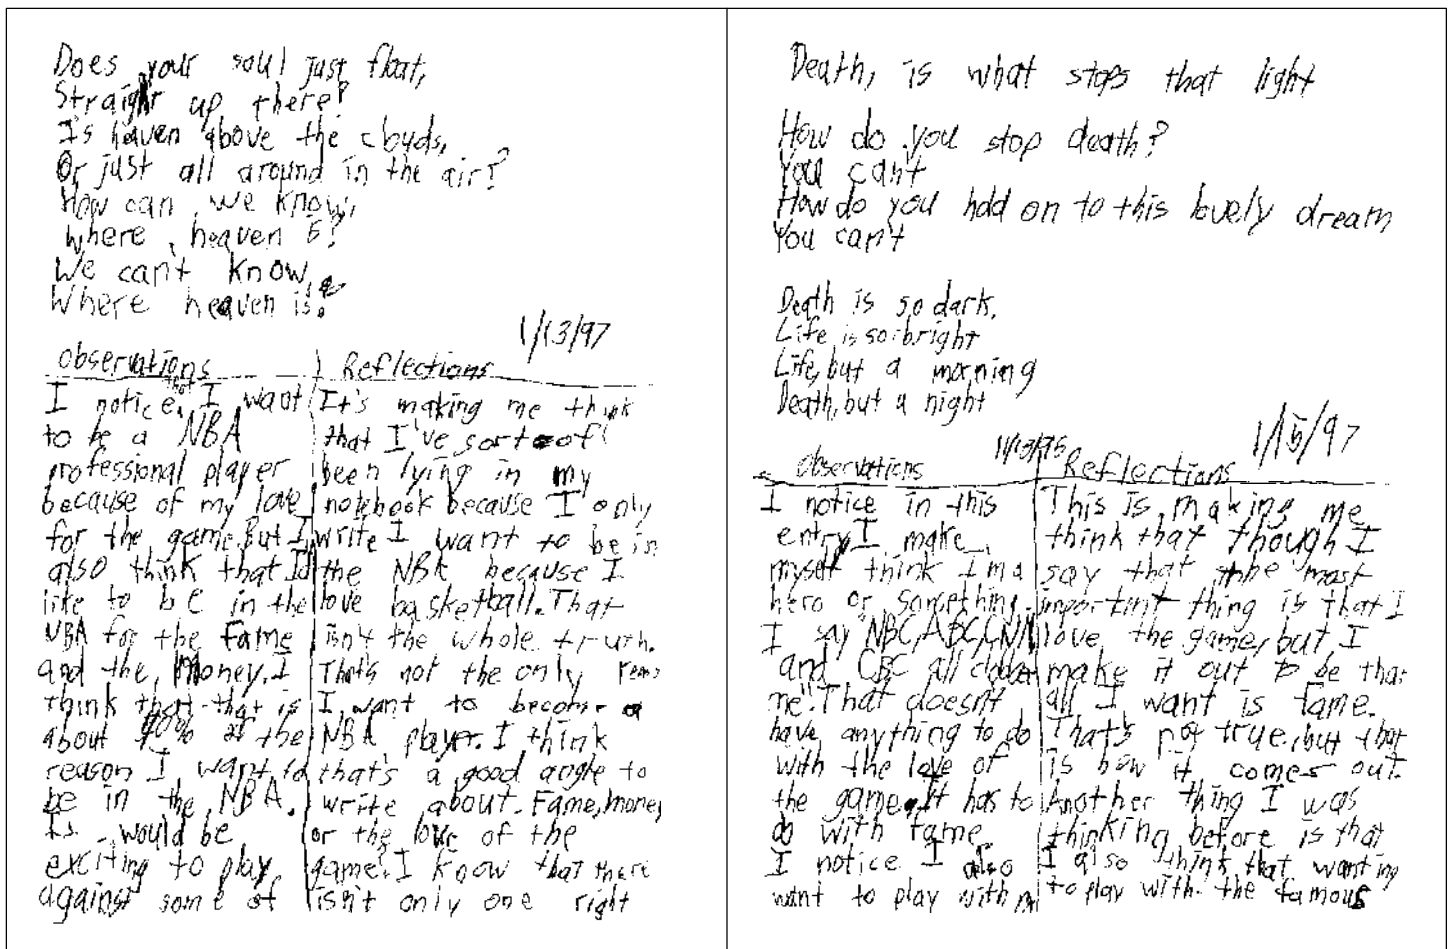 Does your soul just float,
Straight up there?
Is heaven above the clouds,
Or just all around in the air?
How can we know,
Where heaven is?
We can't know,
Where heaven is.
1/13/97
Observations
I notice that I want
to be a NBA
professional player
because of my love
for the game. But I
also think that I'd
like to be in the
NBA for the fame
and the money. I
think that that is
about 40% of the
reason I want to
be in the NBA.
It would be
exciting to play
against some of
Reflections
It's making me think
that I've sort of
been lying in my
notebook because I only
write I want to be in
the NBA because I
love basketball. That
isn't the whole truth.
That's not the only reas
I want to become a
NBA player. I think
that's a good angle to
write about. Fame, money
or the love of the
game? I know that there
isn't only one right
Death, is what stops that light
How do you stop death?
You can't
How do you hold on to this lovely dream
You can't
Death is so dark,
Life is so bright
Life, but a morning
Death, but a night
1/15/97
11/13/95
Observations
I notice in this
entry I make
myself think I'm a
hero or something.
I say "NBC, ABC, CNN
and CBC all
me". That doesn't
have anything to do
with the love of
the game. It has to
do with fame
I notice I also
want to play with
Reflections
This is making me
think that though I
say that the most
important thing is that I
love the game, but I
make it out to be that
all I want is fame.
That's not true, but that
is how it comes out.
Another thing I was
thinking before is that
I also think that wanting
to play with the famous